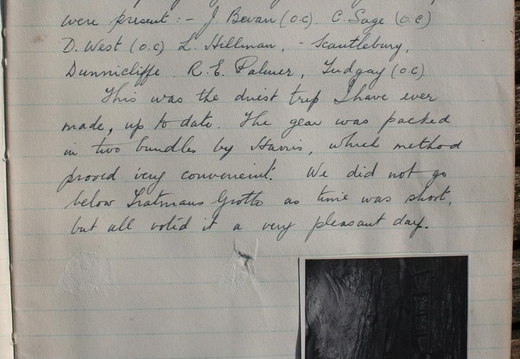 were present :- J. Bevan (o.c) C. Sage (o.c)
D. West (o.c) L. Hillman, - Scantlebury,
Dunnicliffe R. E. Palmer, Tudgay (o.c)
This was the driest trip I have ever
made, up to date. The gear was packed
in two bundles by Harris, which method
proved very convenient. We did not go
below Tratmans Grotto as time was short,
but all voted it a very pleasant day.